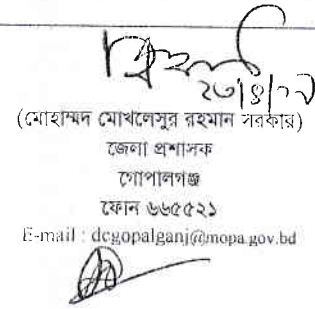 (মোহাম্মদ মোখলেসুর রহমান সরকার)
জেলা প্রশাসক
গোপালগঞ্জ
ফোন ৬৬৫৫২১
E-mail : dcgopalganj@mopa.gov.bd